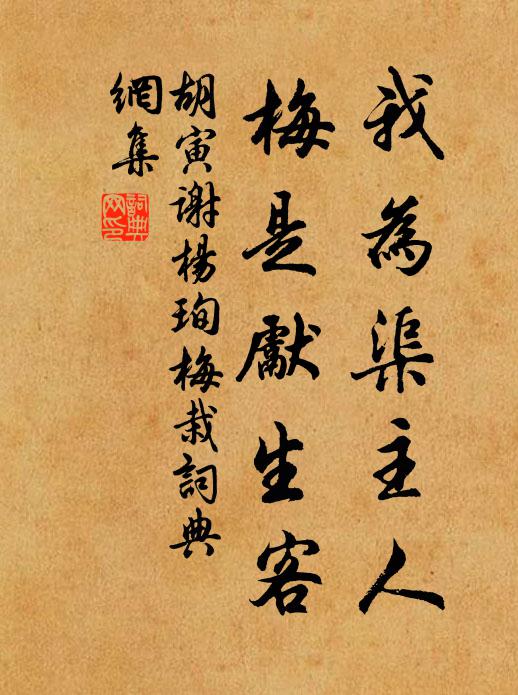 我為渠主人
梅是獻生客
胡寅谢楊珣梅栽詞典
網集
詞典
网印